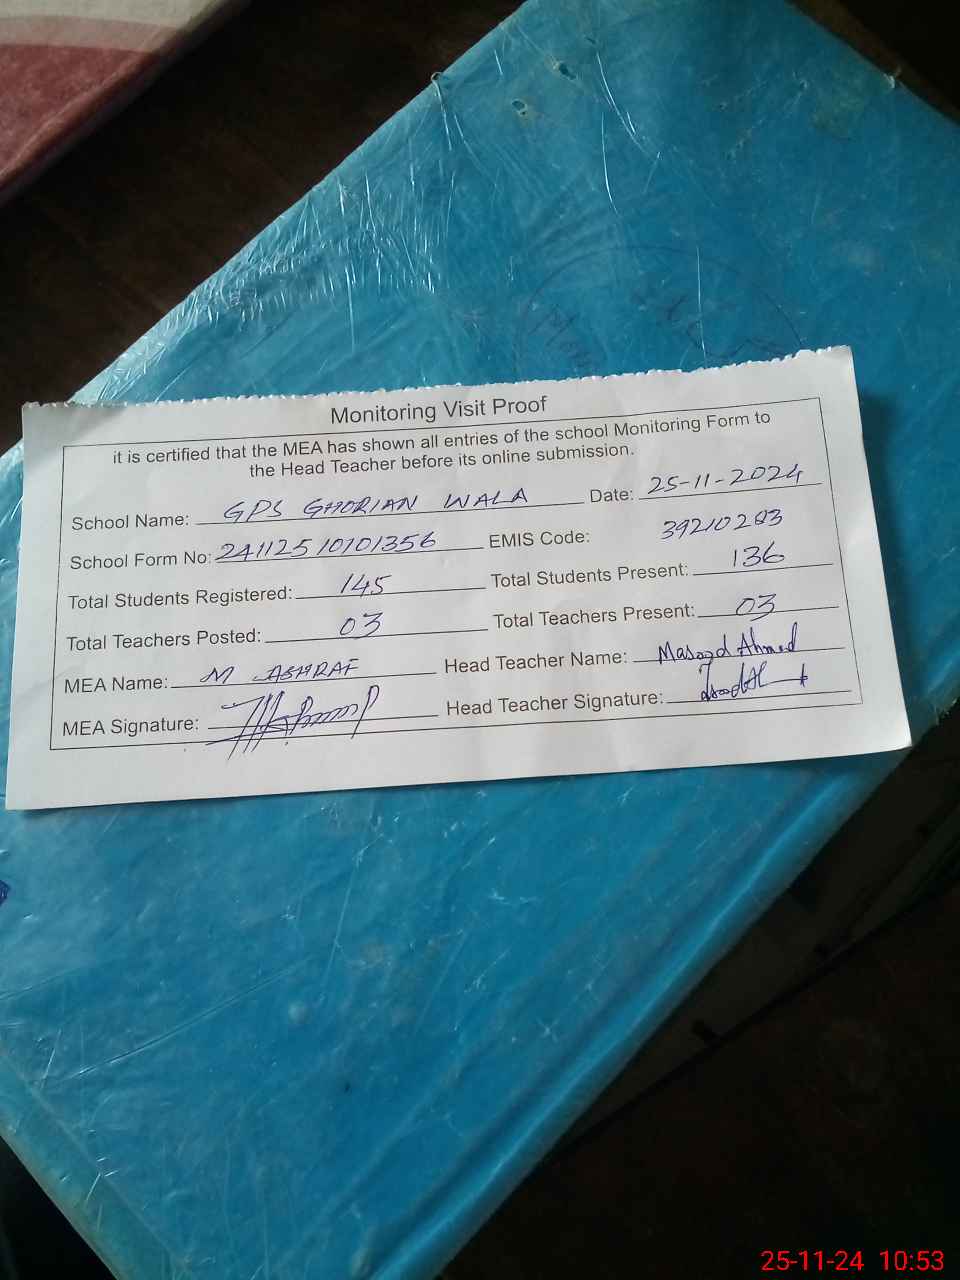 Monitoring Visit Proof
it is certified that the MEA has shown all entries of the school Monitoring Form to
the Head Teacher before its online submission.
School Name: GPS GHORIAN WALA Date: 25-11-2024
School Form No: 24112510101356 EMIS Code: 39210203
Total Students Registered: 145 Total Students Present: 136
Total Teachers Posted: 03 Total Teachers Present: 03
MEA Name: M ASHRAF Head Teacher Name: Masood Ahmed
MEA Signature: Head Teacher Signature:
25-11-24 10:53